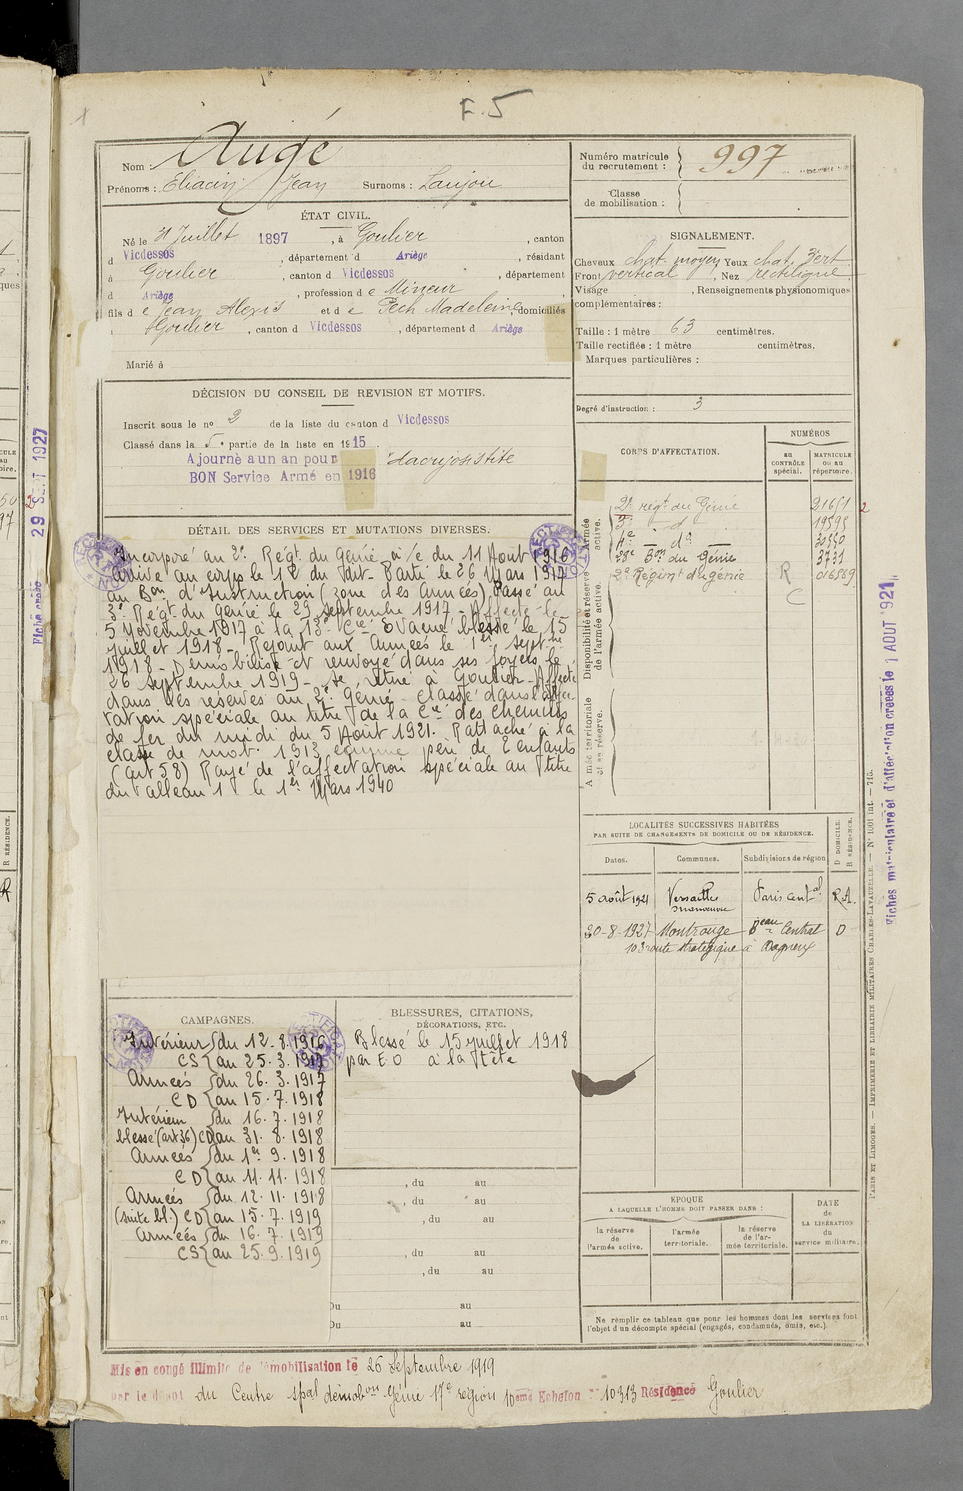 F. 5
Nom : Augé
Prénoms : Eliacin Jean Surnoms : Laujou
ÉTAT CIVIL.
Né le 31 Juillet 1897, à Goulier, canton
d Vicdessos, département d Ariège, résidant
à Goulier, canton d Vicdessos, département
d Ariège, profession de Mineur
fils de Jean Alexis et de Pech Madeleine, domiciliés
à Goulier, canton d Vicdessos, département d Ariège
Marié à
DÉCISION DU CONSEIL DE REVISION ET MOTIFS.
Inscrit sous le n° 2 de la liste du canton d Vicdessos
Classé dans la 5e partie de la liste en 1915.
Ajourné à un an pour dacryocistite
BON Service Armé en 1916
DÉTAIL DES SERVICES ET MUTATIONS DIVERSES.
Incorporé au 2e Régt du Génie à/c du 11 Août 1916
arrivé au corps le 12 du dit - Parti le 26 Mars 1917
au Bon d'Instruction (zone des Armées) Passé au
3e Régt du Génie le 29 Septembre 1917 - Affecté le
5 Novembre 1917 à la 13e Cie Evacué blessé le 15
juillet 1918 - Rejoint aux Armées le 1er septbre
1918 - Démobilisé et renvoyé dans ses foyers le
26 Septembre 1919 - se retire à Goulier - Affecté
dans les réserves au 2e Génie - Classé dans l'affec-
tation spéciale au titre de la Cie des Chemins
de fer du midi du 5 Août 1921. Rattaché à la
classe de mob. 1913 comme père de 2 enfants
(art 58) Rayé de l'affectation spéciale au titre
du tableau 1 le 1er Mars 1940
CAMPAGNES.
Intérieur { du 12.8.1916
CS { au 25.3.1917
Armées { du 26.3.1917
CD { au 15.7.1918
Intérieur { du 16.7.1918
blessé (art 36) CD { au 31.8.1918
Armées { du 1er 9.1918
CD { au 11.11.1918
Armées { du 12.11.1918
(suite bl.) CD { au 15.7.1919
Armées { du 16.7.1919
CS { au 25.9.1919
BLESSURES, CITATIONS,
DÉCORATIONS, ETC.
Blessé le 15 juillet 1918
par E O à la tête
, du au
, du au
, du au
, du au
, du au
Du au
Du au
Numéro matricule
du recrutement : 997
Classe
de mobilisation :
SIGNALEMENT.
Cheveux chat. moyen Yeux chat. vert
Front vertical, Nez rectiligne
Visage, Renseignements physionomiques
complémentaires :
Taille : 1 mètre 63 centimètres.
Taille rectifiée : 1 mètre centimètres.
Marques particulières :
Degré d'instruction : 3
CORPS D'AFFECTATION.
NUMÉROS
au CONTRÔLE spécial.
MATRICULE ou au répertoire.
Armée active.
Disponibilité et réserve de l'armée active.
Armée territoriale et sa réserve.
2e régt du Génie 21651
3e d°
4e d°
28e Bon du Génie 3731
2e Régimt du génie R
C
LOCALITÉS SUCCESSIVES HABITÉES
PAR SUITE DE CHANGEMENTS DE DOMICILE OU DE RÉSIDENCE.
D DOMICILE.
R RÉSIDENCE.
Dates. Communes. Subdivisions de région
5 août 1921 Versailles Paris cental R.A.
manœuvre
20-8-1927 Montrouge Beau Central D
103 route stratégique à Bagneux
ÉPOQUE
A LAQUELLE L'HOMME DOIT PASSER DANS :
la réserve de l'armée active.
l'armée territoriale.
la réserve de l'armée territoriale.
DATE de LA LIBÉRATION du service militaire.
Ne remplir ce tableau que pour les hommes dont les services font
l'objet d'un décompte spécial (engagés, condamnés, omis, etc.).
Mis en congé illimité de démobilisation le 26 Septembre 1919
par le dépôt du Centre spal démobon Génie 17e région 10ème Echelon n° 10313 Résidence Goulier
29 SEPT 1927
Fiches matriculaire et d'affectation créées le 1 AOUT 1921
PARIS ET LIMOGES. — IMPRIMERIE ET LIBRAIRIE MILITAIRES CHARLES-LAVAUZELLE. — N° 1001 int. — 715.